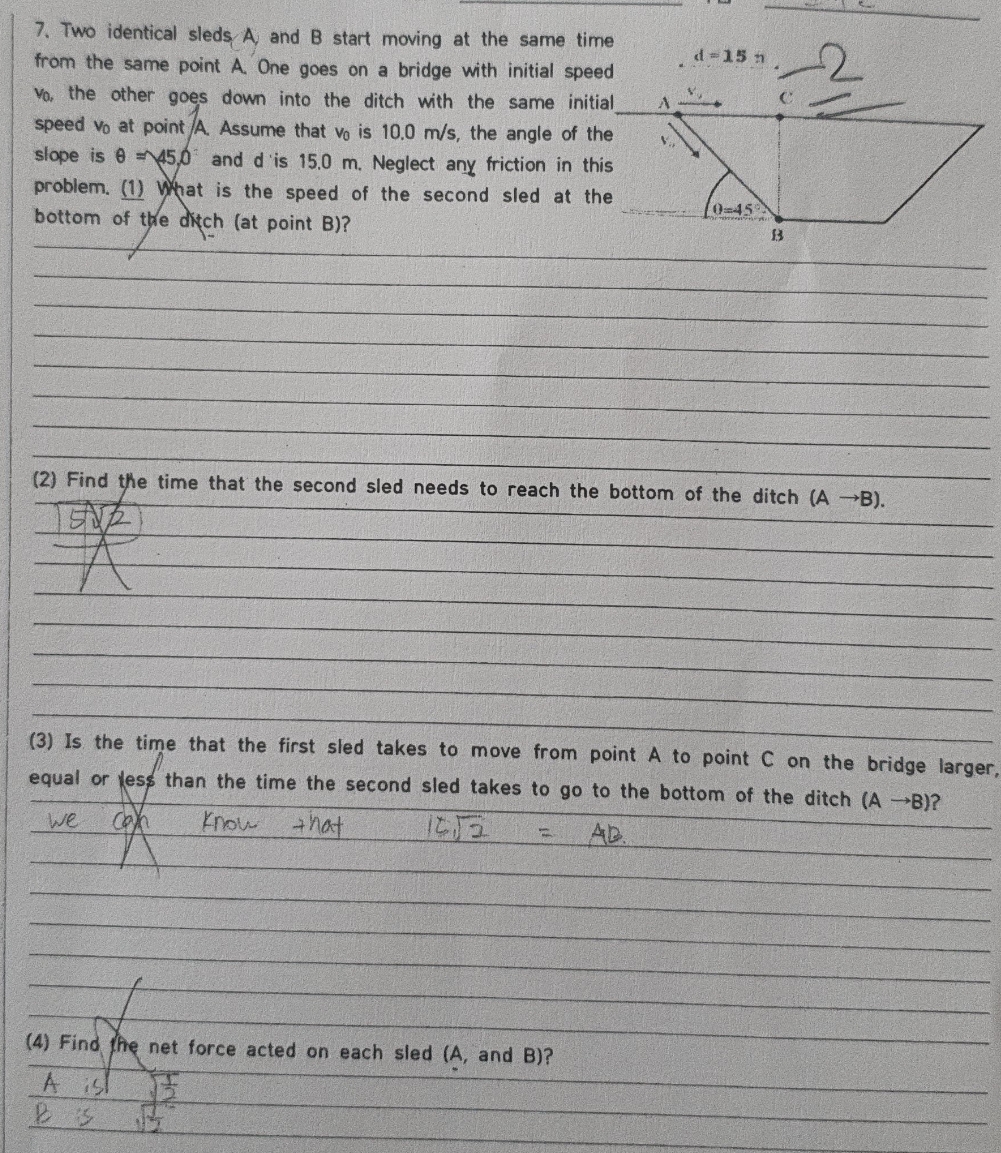 7. Two identical sleds A, and B start moving at the same time
from the same point A. One goes on a bridge with initial speed
v₀, the other goes down into the ditch with the same initial
speed v₀ at point A. Assume that v₀ is 10.0 m/s, the angle of the
slope is θ = 45.0° and d is 15.0 m. Neglect any friction in this
problem. (1) What is the speed of the second sled at the
bottom of the ditch (at point B)?
d=15 m
-2
A v₀ C
v₀
θ=45°
B
(2) Find the time that the second sled needs to reach the bottom of the ditch (A →B).
5√2
(3) Is the time that the first sled takes to move from point A to point C on the bridge larger,
equal or less than the time the second sled takes to go to the bottom of the ditch (A →B)?
we can know that 15√2 = AB.
(4) Find the net force acted on each sled (A, and B)?
A is
B is